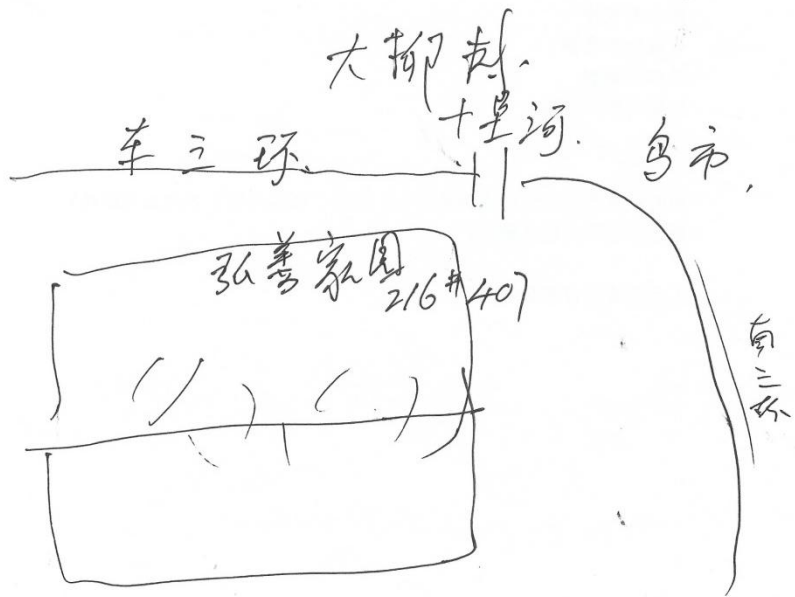 大柳树.
十里河.
东三环
鸟市,
弘善家园
216#407
南三环